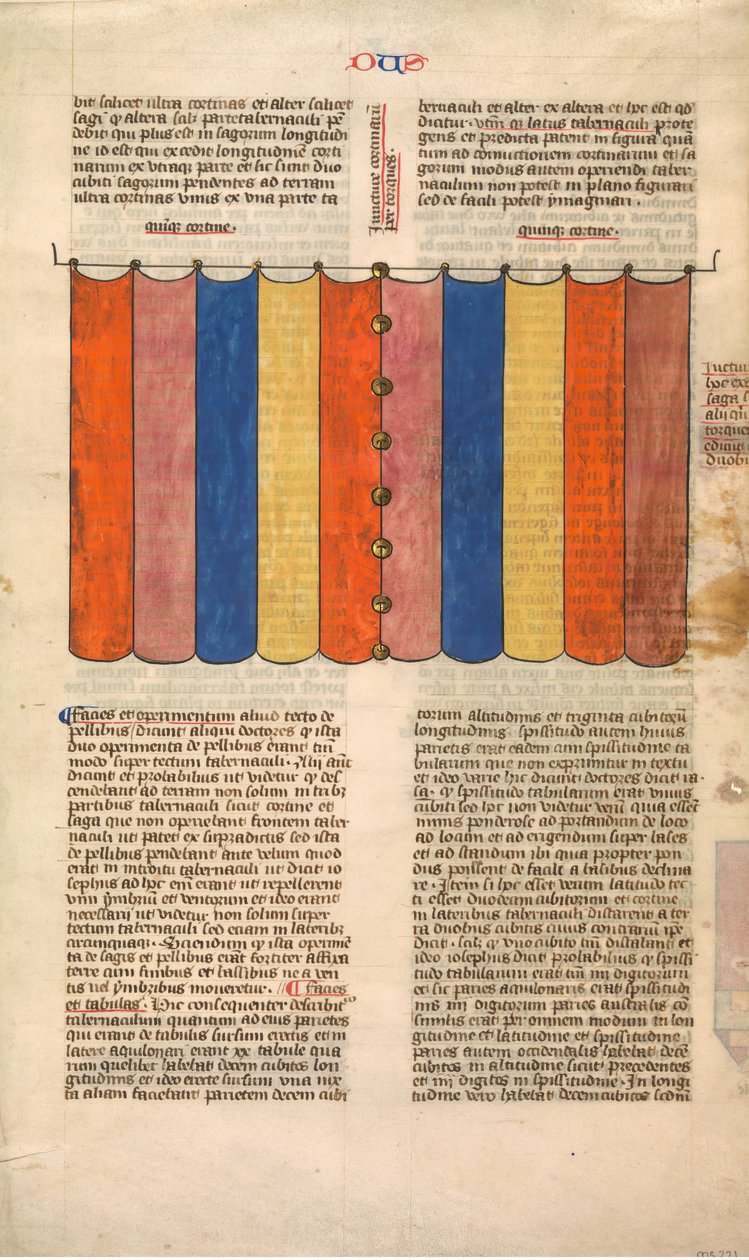 DUS
bit scilicet ultra cortinas et alter scilicet
sagi qͥ altera scilꝫ parte tabernaculi pē
debit qui plus est in sagorum longitudi
ne id est qui excedit longitudinē corti
narum ex utraqꝫ parte et sic sunt duo
cubiti sagorum pendentes ad terram
ultra cortinas unus ex una parte ta
quīqꝫ cortine.
Iuncture cortinarū
per torques.
bernaculi et alter ex altera et hoc est qd̄
dicitur. utrūqꝫ latus tabernaculi prote
gens et predicta patent in figura quā
tum ad coniunctionem cortinarum et sa
gorum modus autem operiendi taber
naculum non potest in plano figurari
sed de facili potest ymaginari.
quinqꝫ cortine.
saga
torque
duobꝫ
¶ Facies et operimentum aliud tecto de
pellibus / dicunt aliqui doctores qͥ ista
duo operimenta de pellibus erant tm̄
modo super tectum tabernaculi. Alii aūt
dicunt et probabilius ut videtur qͥ des
cendebant ad terram non solum in tribꝫ
partibus tabernaculi sicut cortine et
saga que non operiebant frontem taber
naculi ut patet ex supradictis sed ista
de pellibus pendebant ante velum quod
erat in introitu tabernaculi ut dicit io
sephus ad hoc em̄ erant ut repellerent
vim ymbrium et ventorum et ideo erant
necessarii ut videtur non solum super
tectum tabernaculi sed eciam in lateribꝫ
circumquaqꝫ. Sciendum qͥ ista operimē
ta de sagis et pellibus erant fortiter affixa
terre cum funibus et bassibus ne a ven
tis vel ymbribus moueretur. // ¶ Facies
et tabulas. Hic consequenter describit
tabernaculum quantum ad eius parietes
qui erant de tabulis sursum erectis et in
latere aquilonari erant xx tabule qua
rum quelibet habebat decem cubitos lon
gitudinis et ideo erecte sursum una iux
ta aliam faciebant parietem decem cubi
torum altitudinis et triginta cubitorū
longitudinis spissitudo autem huius
parietis erat eadem cum spissitudine ta
bularum que non exprimitur in textu
et ideo varie hic dicunt doctores dicit ra.
sa. qͥ spissitudo tabularum erat unius
cubiti sed hoc non videtur verū quia essēt
nimis ponderose ad portandum de loco
ad locum et ad erigendum super bases
et ad standum ibi quia propter pon
dus possent de facili a basibus declina
re. Item si hoc esset verum latitudo tec
ti esset duodecim cubitorum et cortine
in lateribus tabernaculi distarent a ter
ra duobus cubitis cuius contrarium ipe
dicit. scilꝫ qͥ uno cubito tm̄ distabant et
ideo iosephus dicit probabilius qͥ spissi
tudo tabularum erat tm̄ iiii digitorum
et sic paries aquilonaris erat spissitudi
nis iiii digitorum paries australis cō
similis erat per omnem modum in lon
gitudine et latitudine et spissitudine
paries autem occidentalis habebat decē
cubitos in altitudine sicut precedentes
et iiii digitos in spissitudine. In longi
tudine vero habebat decem cubitos scdm̄